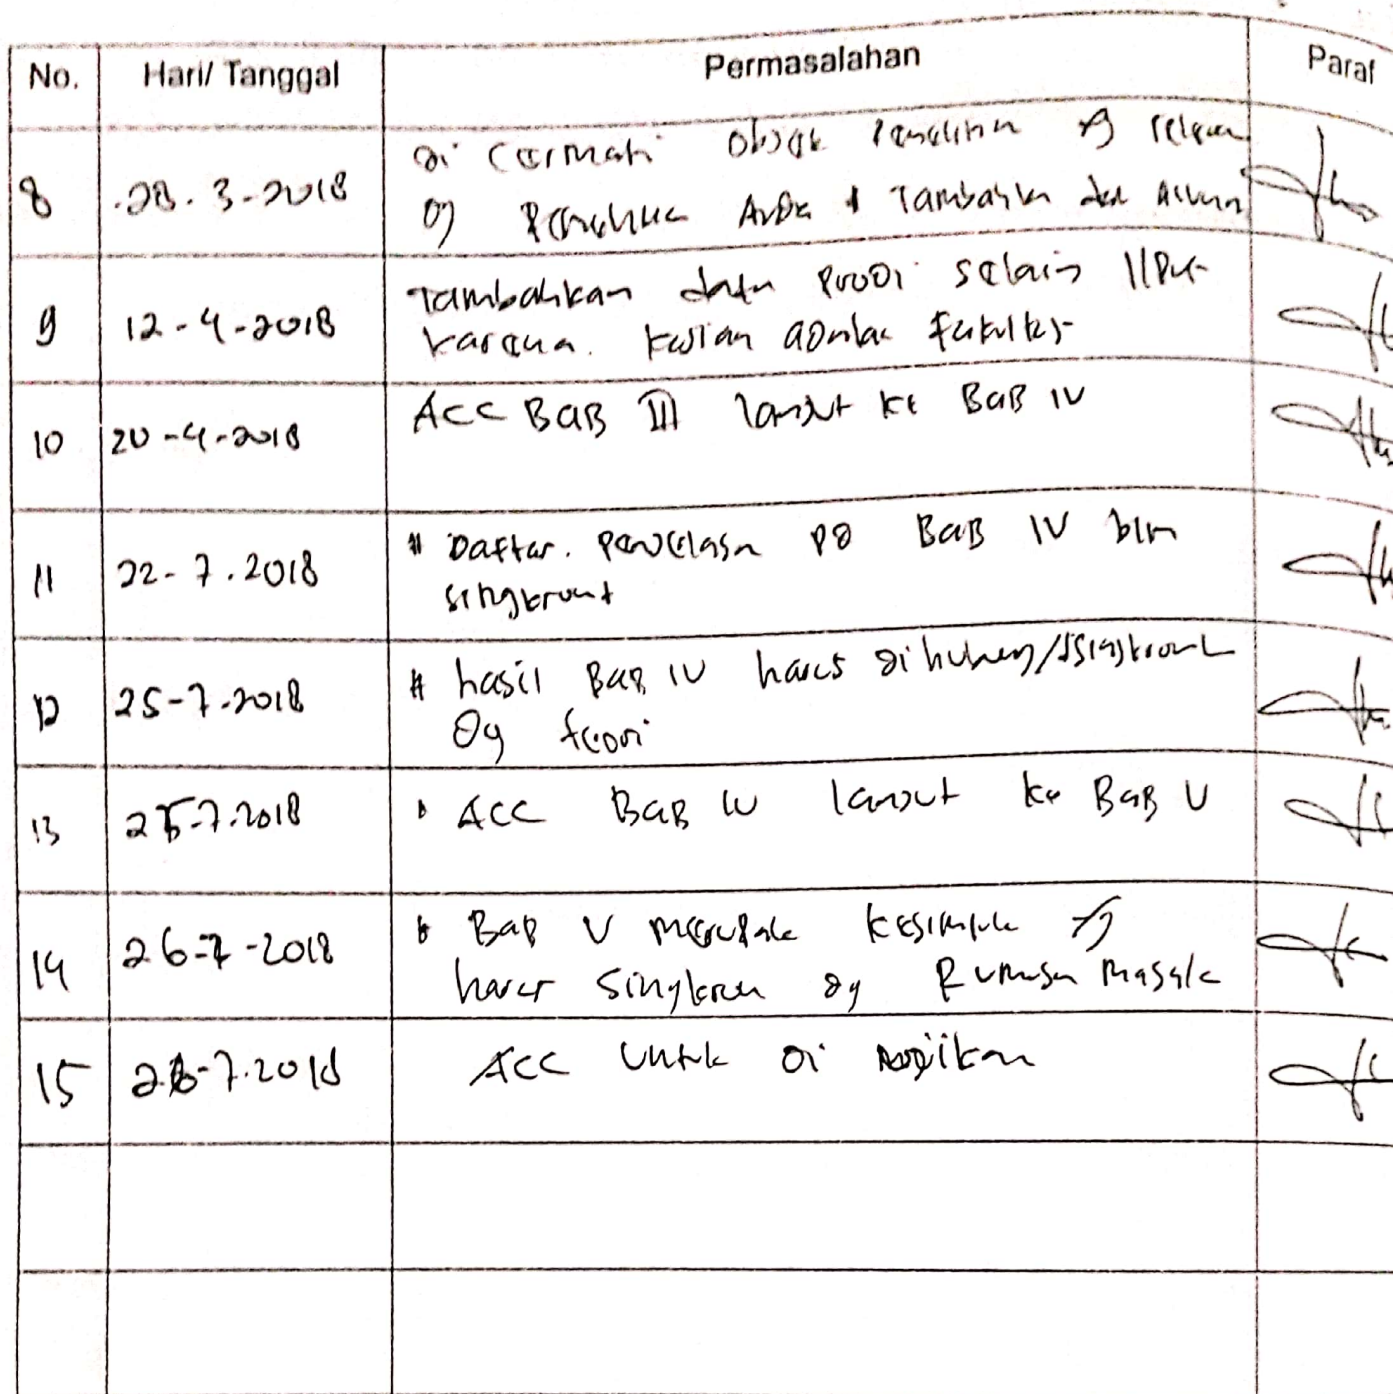 No. Hari/ Tanggal Permasalahan Paraf
8 28.3-2018 di cermati objek penelitian yg relevan
dg Anda & Tambahkan
9 12-4-2018 Tambahkan data prodi selain
karena. kajian adalah Fakultas
10 20-4-2018 ACC BAB III lanjut ke BAB IV
11 22-7.2018 Daftar. penjelasan pd BAB IV blm
singkront
12 25-7-2018 # hasil BAB IV harus di
dg teori
13 25-7.2018 ACC BAB IV lanjut ke BAB V
14 26-7-2018 BAB V merupak kesimpula yg
harus singkron dg Rumusan masala
15 28-7.2018 ACC untuk di